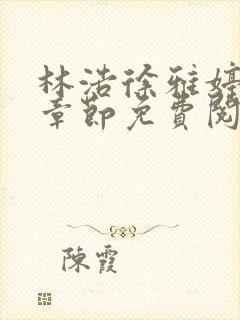 林浩徐雅婷
章節免費閱
陳霞